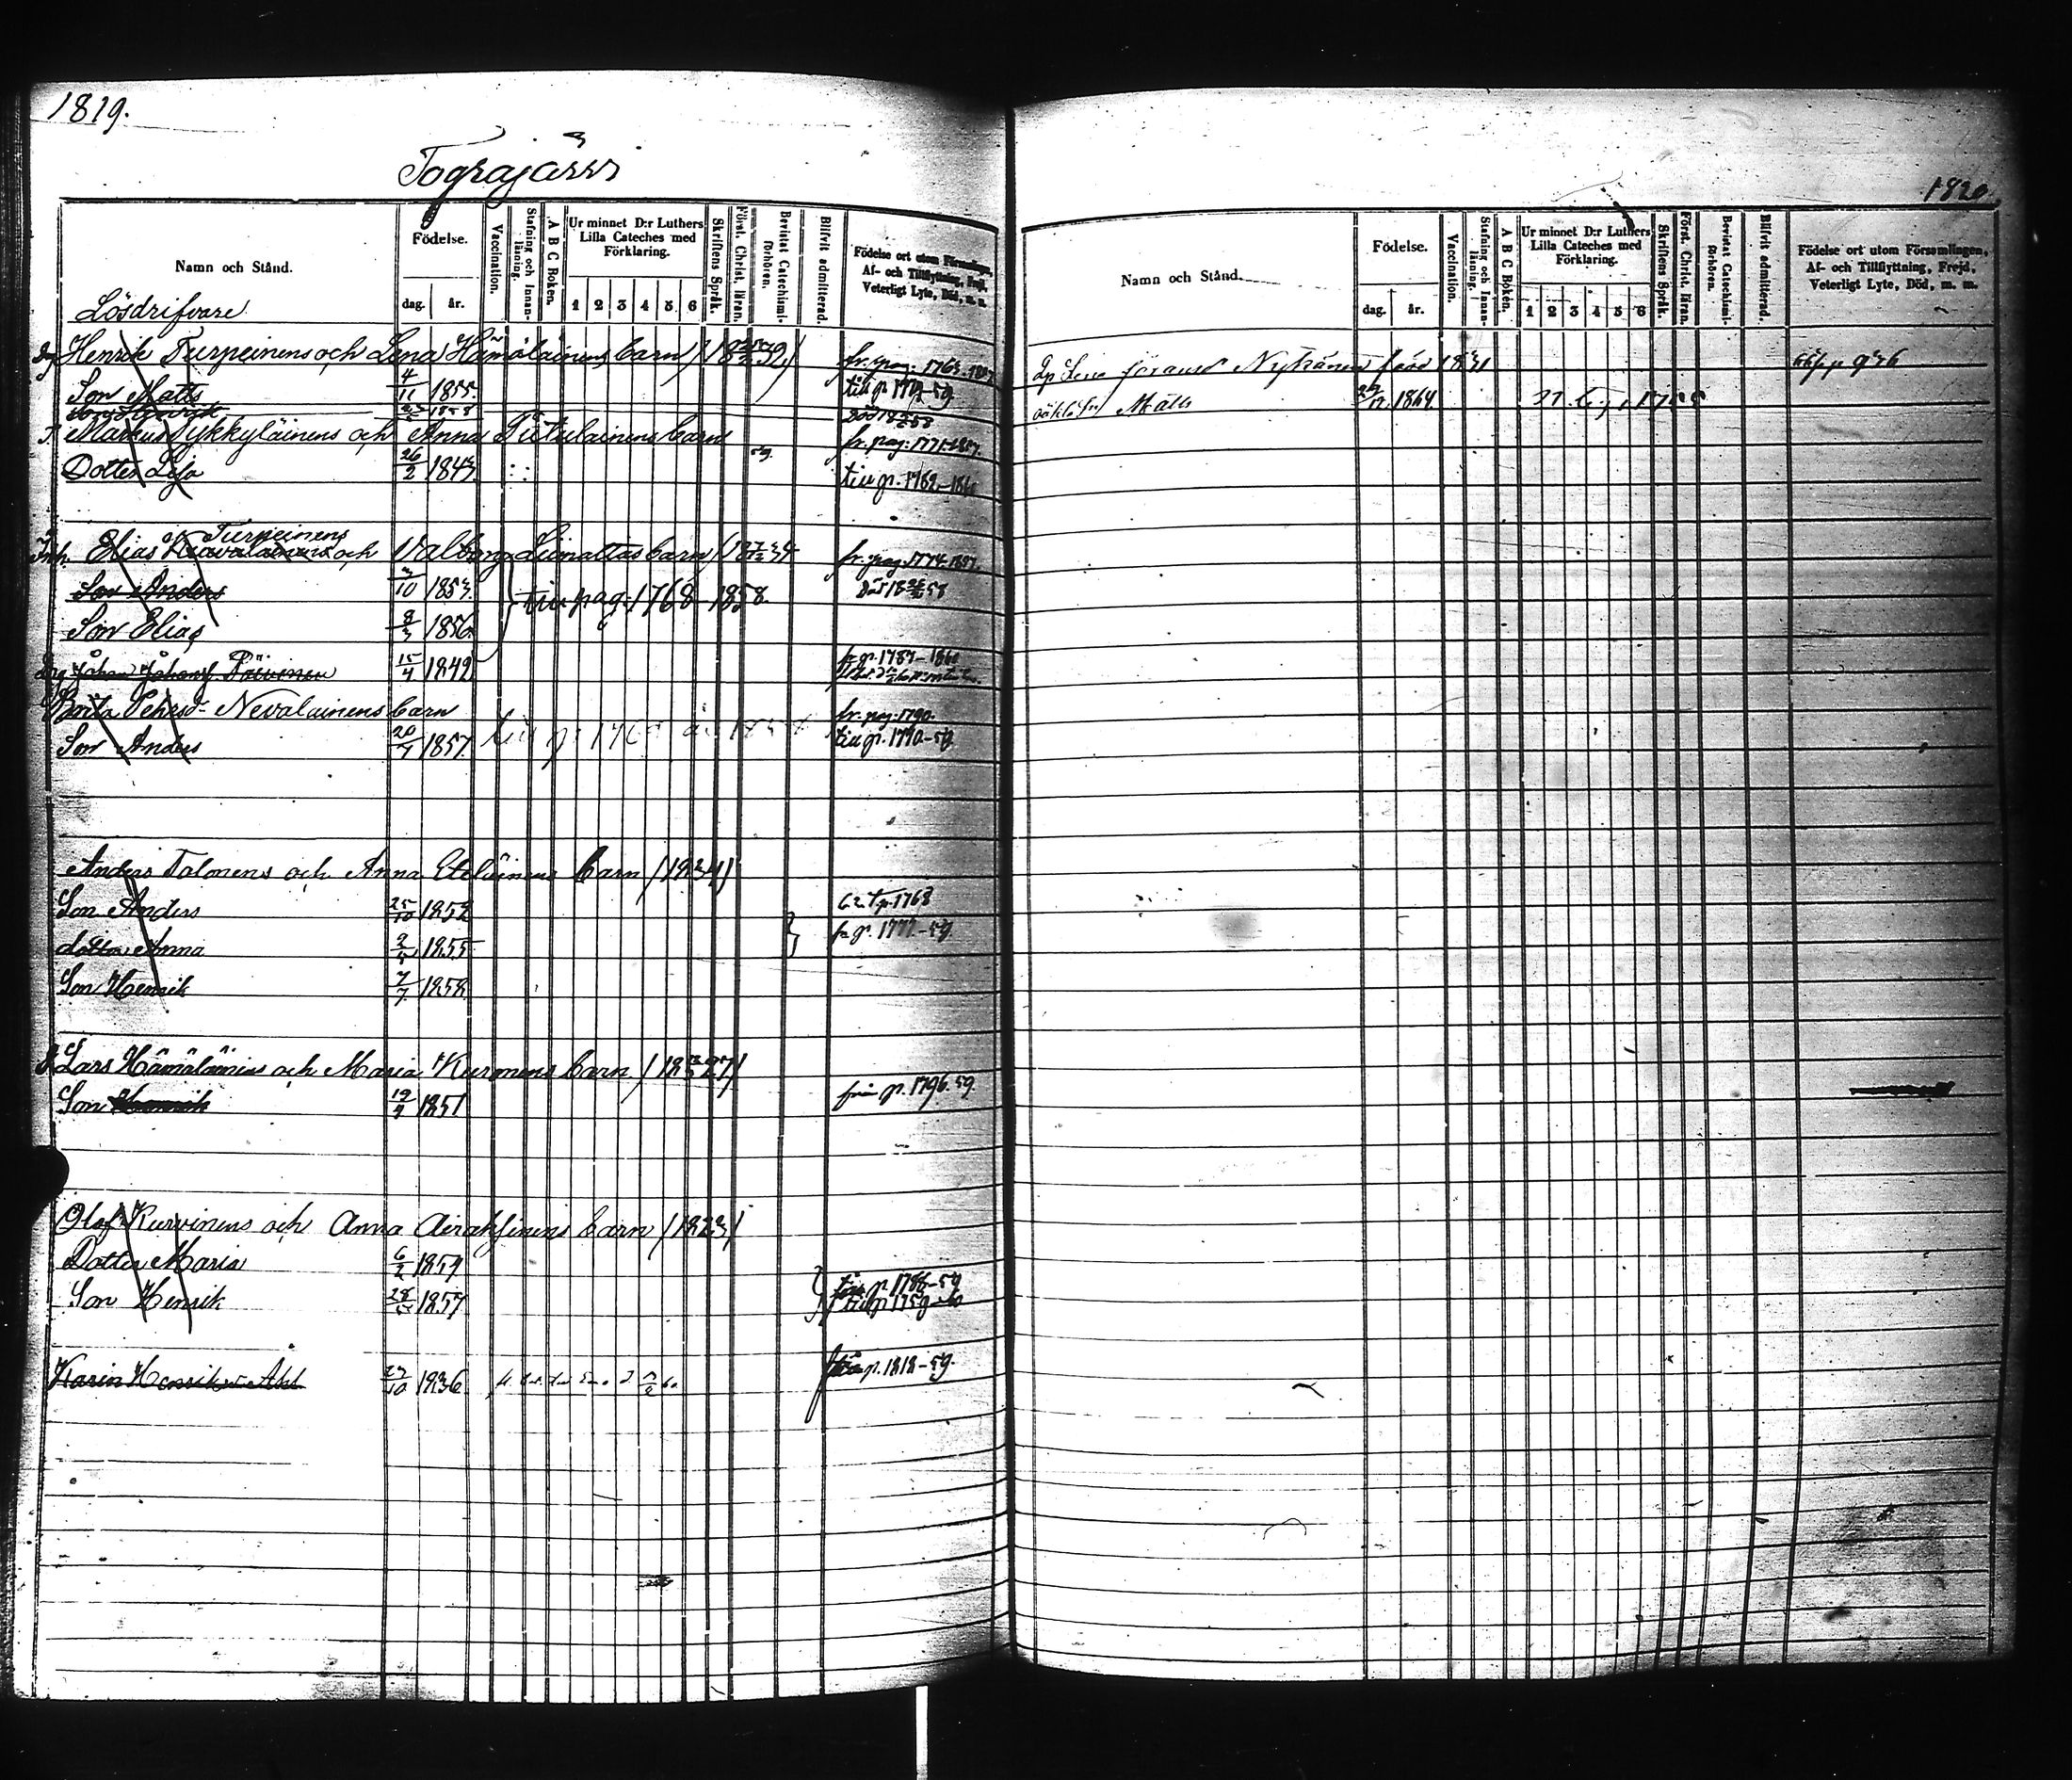 1819.
Tograjärvi
Namn och Stånd.
Födelse.
dag. år.
Vaccination.
Stafning och Innanläsning.
A B C Boken.
Ur minnet D:r Luthers Lilla Cateches med Förklaring.
1 2 3 4 5 6
Skriftens Språk.
Först. Christ. läran.
Bevistat Catechismiförhören.
Blifvit admitterad.
Födelse ort utom Församlingen, Af- och Tillflyttning, Frejd, Veterligt Lyte, Död, m. m.
Lösdrifvare
Henrik Turpeinens och Lena Hämäläinens barn fr. pag. 1763-1857
Son Matts 4/11 1855. till p. 1772-59
Son Henrik 1858 Död 18 58
Markus Tykkyläinens och Anna Piitulainens barn fr. pag. 1771-1857.
Dotter Lisa 26/2 1843. till p. 1762-1860
Turpeinens
Inh. Elias och Valborg Liimattas barn fr. pag. 1774-1857.
Son Anders 3/10 1853. till pag. 1768 1858. Död 18 58
Son Elias 9/3 1856
Johan Johansf. Päivinen 15/4 1842 fr. p. 1787-1860
Brita Pehrsd. Nevalainens barn fr. pag. 1790.
Son Anders 20/7 1857. till p. 1770-59
Anders Talonens och Anna Eteläinens barn (1834)
Son Anders 25/10 1852 62 T p. 1768
dotter Anna 9/5 1855 fr p. 1777-59
Son Henrik 7/7 1858.
Lars Hämäläinens och Maria Kuronens barn
Son Henrik 19/4 1851 från p. 1796. 59.
Olof Kurvinens och Anna Airaksinens barn (1823)
Dotter Maria 6/2 1854 från p. 1788-59
Son Henrik 28/5 1857 till p 1759-60
Karin Henriksd. Ahl 27/10 1836. från p. 1818-59.
1820.
Namn och Stånd.
Födelse.
dag. år.
Vaccination.
Stafning och Innanläsning.
A B C Boken.
Ur minnet D:r Luthers Lilla Cateches med Förklaring.
1 2 3 4 5 6
Skriftens Språk.
Först. Christ. läran.
Bevistat Catechismiförhören.
Blifvit admitterad.
Födelse ort utom Församlingen, Af- och Tillflyttning, Frejd, Veterligt Lyte, Död, m. m.
Göransd Nykänen född
oäkta Son Matts 1864.